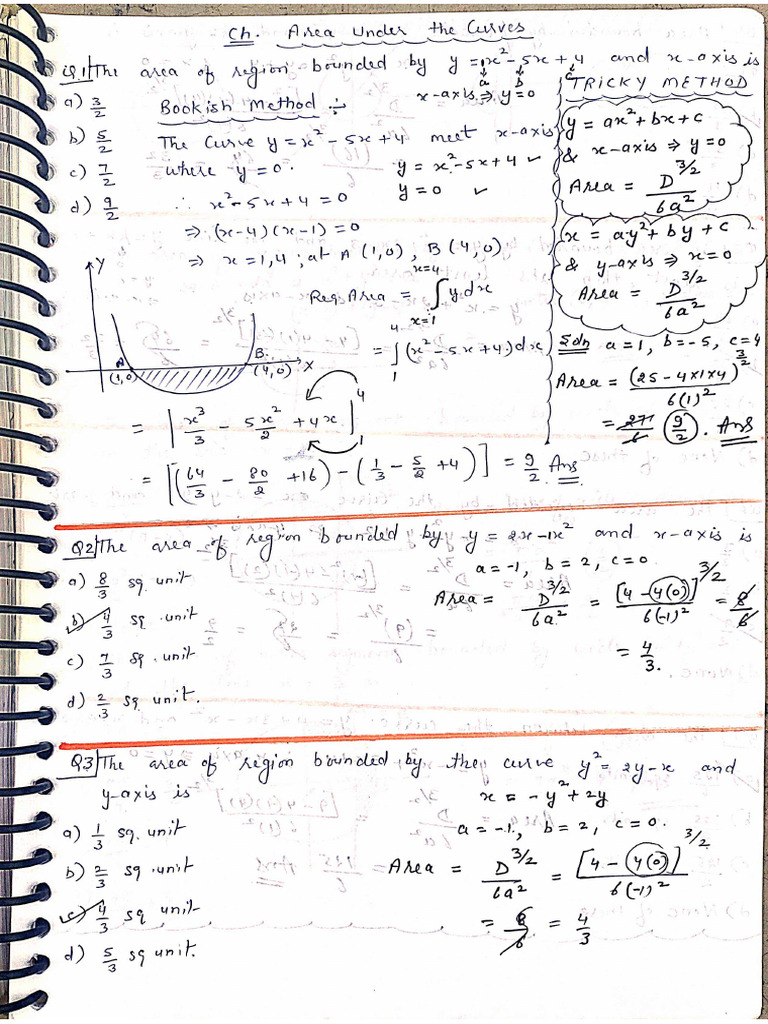 Ch. Area Under the Curves
Q.1 The area of region bounded by y = 1x² - 5x + 4 and x-axis is
a b c
x-axis ⇒ y=0
a) 3/2
b) 5/2
c) 7/2
d) 9/2
Bookish Method :-
The Curve y = x² - 5x + 4 meet x-axis
where y = 0.
y = x² - 5x + 4 ✓
y = 0 ✓
∴ x² - 5x + 4 = 0
⇒ (x-4)(x-1) = 0
⇒ x = 1, 4 ; at A (1,0), B (4,0)
Req Area = ∫_{x=1}^{x=4} y dx
= ∫_1^4 (x² - 5x + 4) dx
Y
A
(1,0)
B
(4,0)
X
= | x³/3 - 5x²/2 + 4x |_1^4
= |(64/3 - 80/2 + 16) - (1/3 - 5/2 + 4)] = 9/2. Ans
TRICKY METHOD
y = ax² + bx + c
& x-axis ⇒ y=0
Area = D^{3/2}/6a²
x = ay² + by + c
& y-axis ⇒ x=0
Area = D^{3/2}/6a²
Soln a=1, b=-5, c=4
Area = (25 - 4x1x4)^{3/2}/6(1)²
= 27/6 9/2. Ans
Q2 The area of region bounded by y = 2x - 1x² and x-axis is
a) 8/3 sq unit
b) 4/3 sq unit
c) 7/3 sq unit
d) 2/3 sq unit.
a = -1, b = 2, c = 0.
Area = D^{3/2}/6a² = [4 - 4(0)]^{3/2}/6(-1)² = 8/6
= 4/3.
Q3 The area of region bounded by the curve y² = 2y - x and
y-axis is
x = -y² + 2y
a) 1/3 sq. unit
b) 2/3 sq. unit
c) 4/3 sq unit
d) 5/3 sq unit.
a = -1, b = 2, c = 0.
Area = D^{3/2}/6a² = [4 - 4(0)]^{3/2}/6(-1)²
= 8/6 = 4/3